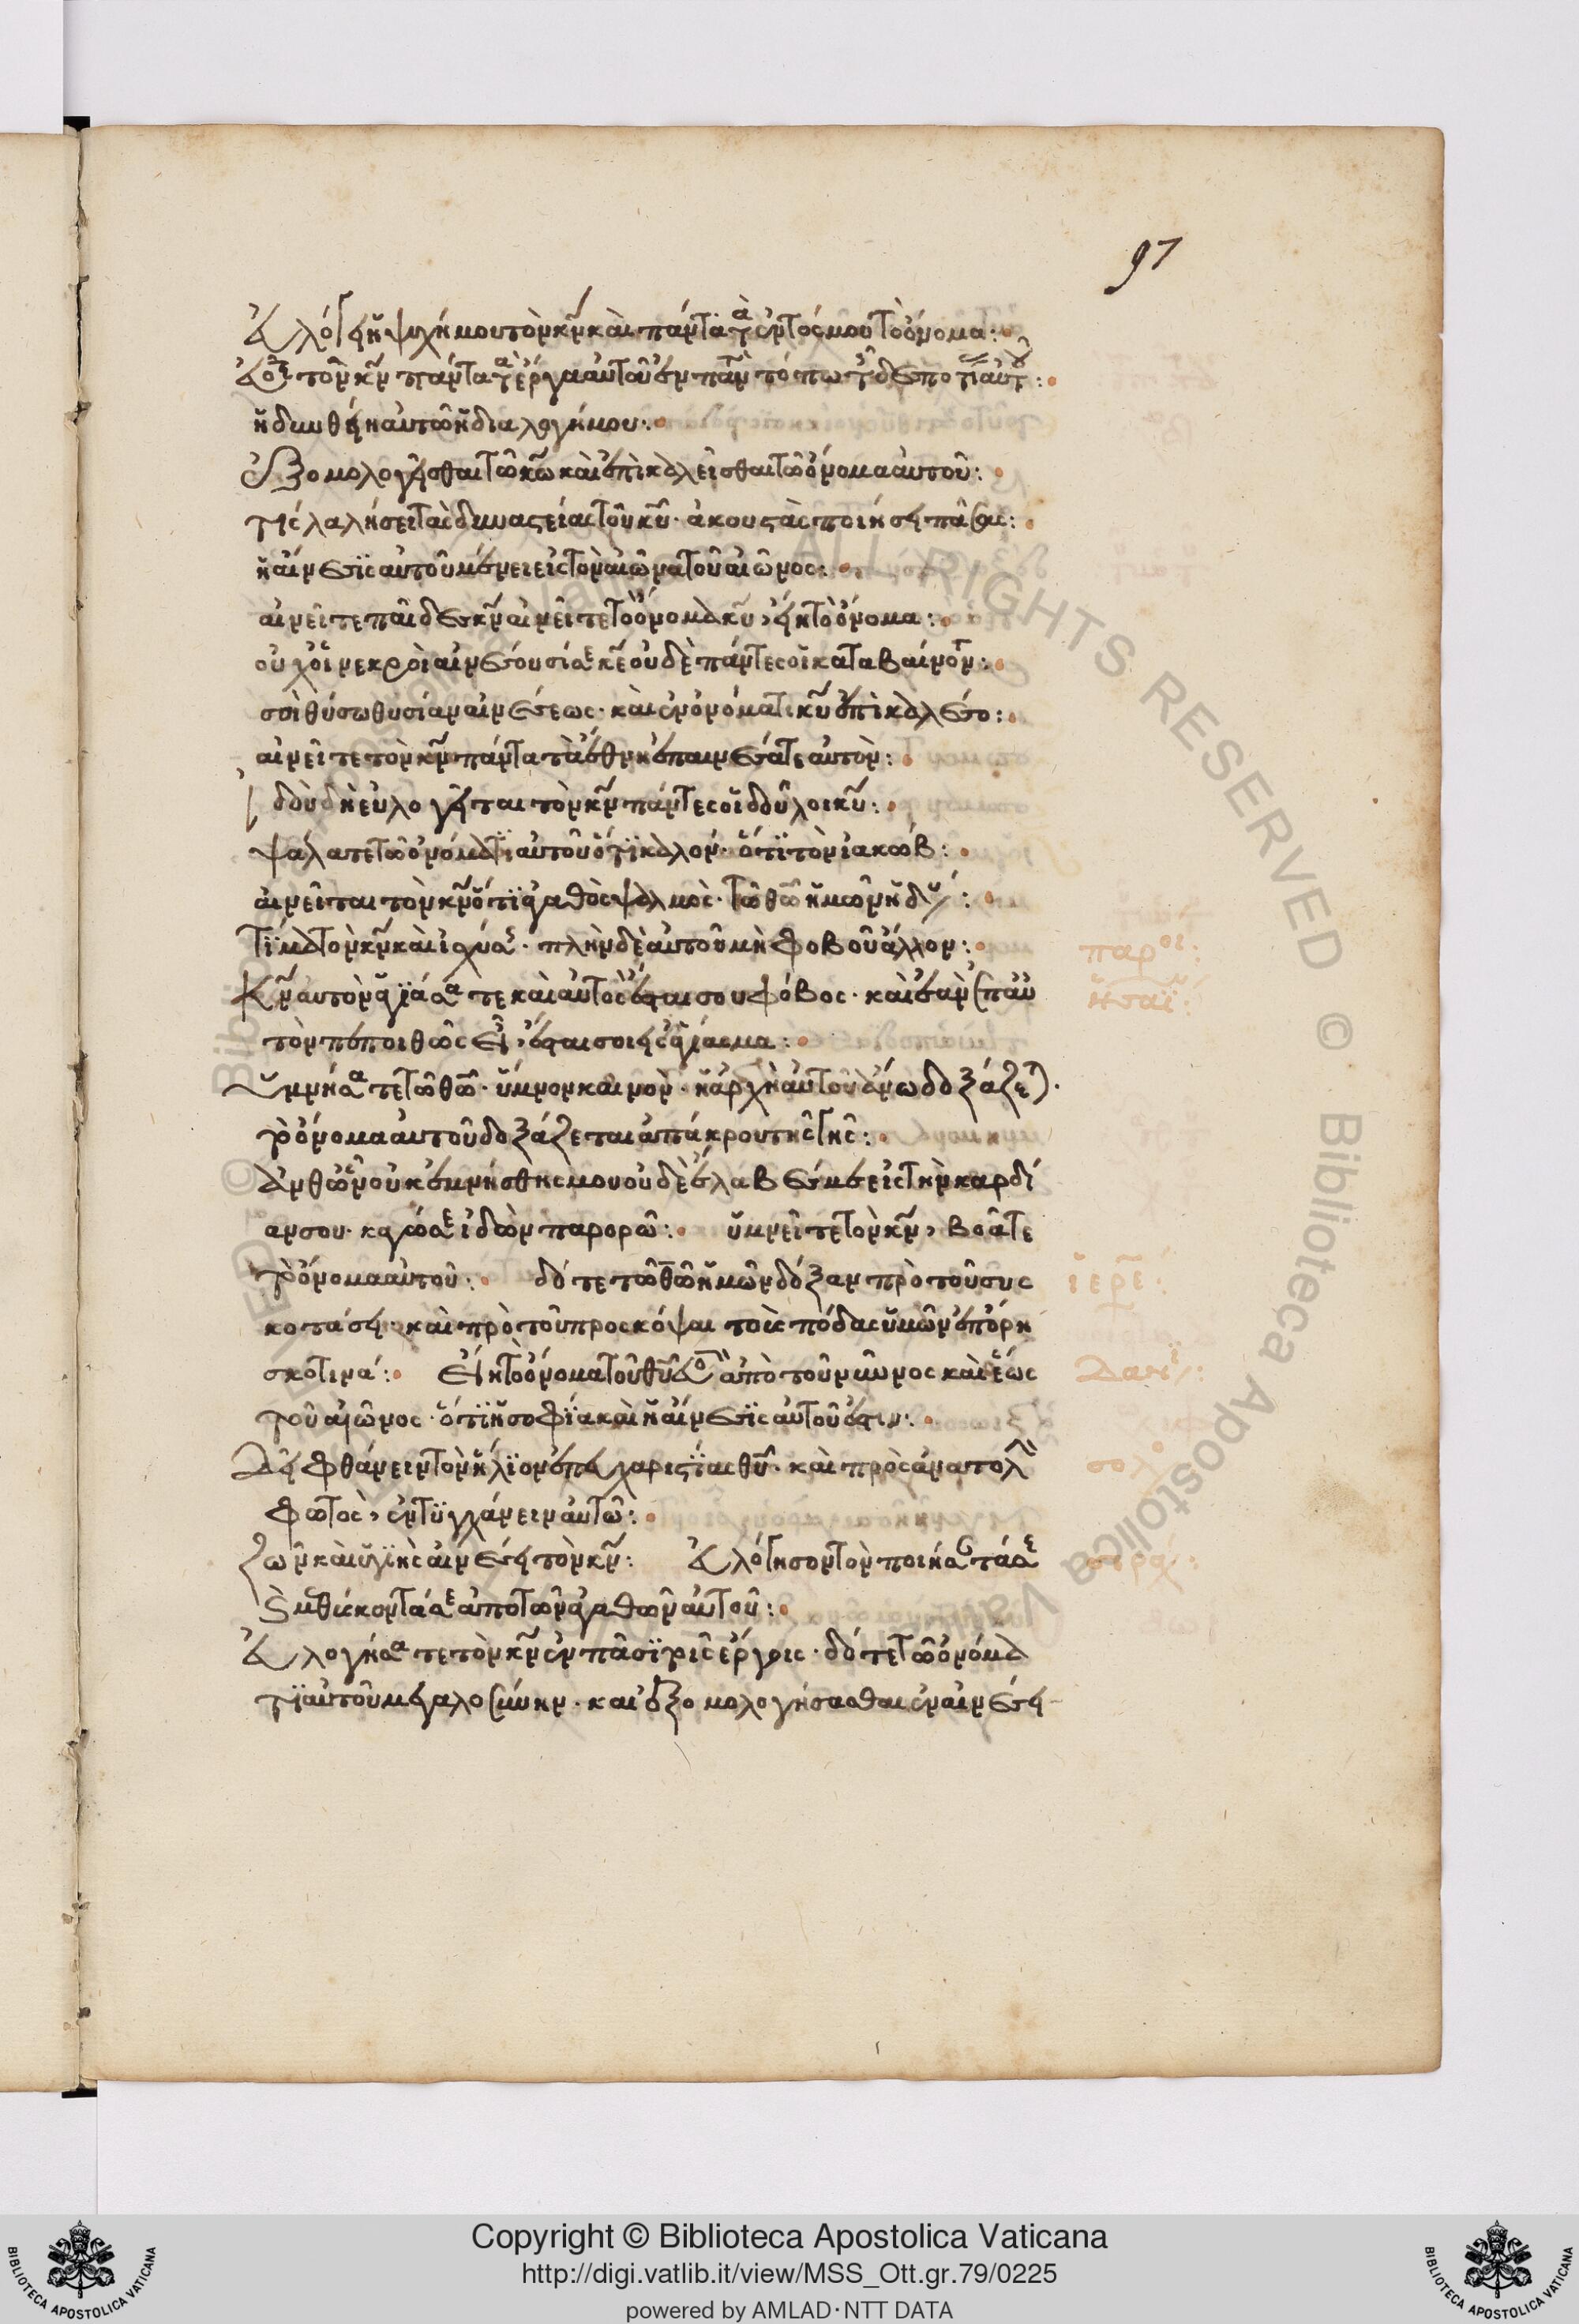 97
εὐλόγει ἡ ψυχή μου τὸν κν̅ καὶ πάντα τὰ ἐντός μου τὸ ὄνομα:
εὐλογεῖτε τὸν κν̅ πάντα τὰ ἔργα αὐτοῦ ἐν παντὶ τόπω τῆς δεσποτείας αὐτοῦ:
ἡδυνθείη αὐτῶ ἡ διαλογή μου:
ἐξομολογεῖσθαι τῶ κω̅ καὶ ἐπικαλεῖσθαι τῶ ὄνομα αὐτοῦ:
τίς λαλήσει τὰς δυναστείας τοῦ κυ̅· ἀκουστὰς ποιήσει πάσας:
ἡ αἴνεσϊς αὐτοῦ μένει εἰς τὸν αἰῶνα τοῦ αἰῶνος:
αἰνεῖτε παῖδες κν̅ αἰνεῖτε τὸ ὄνομα κυ̅, εἴη τὸ ὄνομα:
οὐχ οἱ νεκροὶ αἰνέσουσί σε κε̅ οὐδὲ πάντες οἱ καταβαίνοντες:
σοὶ θύσω θυσίαν αἰνέσεως· καὶ ἐν ὀνόματι κυ̅ ἐπικαλέσο:
αἰνεῖτε τὸν κν̅ πάντα τὰ ἔθνη ἐπαινέσατε αὐτὸν:
ἰδοὺ δὴ εὐλογεῖται τὸν κν̅ πάντες οἱ δοῦλοι κυ̅:
ψάλατε τῶ ὀνόματϊ αὐτοῦ ὅτϊ καλον· ὅτϊ τὸν ἰακώβ:
αἰνεῖται τὸν κν̅ ὅτϊ ἀγαθὸς ψαλμὸς· τῶ θω̅ ἡμῶν ἡδυ:
τίμα τὸν κν̅ καὶ ἰσχύσεις· πλὴν δὲ αὐτοῦ μὴ φοβοῦ ἄλλον:
παροι:
κν̅ αὐτὸν ἁγϊάσατε καὶ αὐτὸς ἔσται σου φόβος· καὶ ἐὰν ἐπ' αὐ
ἡσαϊ:
τὸν πεποιθὼς εἶ, ἔσται σοι εἰς ἁγίασμα:
ὑμνήσατε τῶ θω̅· ὕμνον καινὸν· ἡ ἀρχὴ αὐτοῦ ἄνω δοξάζεται.
τὸ ὄνομα αὐτοῦ δοξάζεται ἀπ' ἄκρου τῆς γῆς:
ἀνθ' ὧν οὐκ ἐμνήσθης μου οὐδὲ ἔλαβές με εἰς τὴν καρδί
αν σου· κἀγώ σε ἰδὼν παρορῶ: ὑμνεῖτε τὸν κν̅, βοᾶτε
τὸ ὄνομα αὐτοῦ: δότε τῶ θω̅ ἡμῶν δόξαν πρὸ τοῦ συς
ἱερε:
κοτάσει· καὶ πρὸ τοῦ προσκόψαι τοὺς πόδας ὑμῶν ἐπ' ὄρη
σκοτινά: εἴη τὸ ὄνομα τοῦ θυ̅ εὐλογημένον ἀπὸ τοῦ νῦν αἰῶνος καὶ ἕως
Δανϊ:
τοῦ αἰῶνος· ὅτϊ ἡ σοφΐα καὶ ἡ αἴνεσϊς αὐτοῦ ἐστιν:
δεῖ φθάνειν τὸν ἥλϊον ἐπ' εὐχαριστΐας θυ̅· καὶ πρὸς ἀνατολὴν
σολ
φωτὸς, ἐντϋγχάνειν αὐτῶ:
ζῶν καὶ ὑγϊὴς αἰνέσει τὸν κν̅: εὐλόγησον τὸν ποιήσαντά σε
σιράχ:
καὶ μεθύσκοντά σε ἀπὸ τῶν ἀγαθῶν αὐτοῦ:
εὐλογήσατε τὸν κν̅ ἐν πᾶσϊ τοῖς ἔργοις· δότε τῶ ὀνόμα
τϊ αὐτοῦ μεγαλοσύνην· καὶ ἐξομολογήσασθαι ἐν αἰνέσει
Copyright © Biblioteca Apostolica Vaticana
http://digi.vatlib.it/view/MSS_Ott.gr.79/0225
powered by AMLAD·NTT DATA